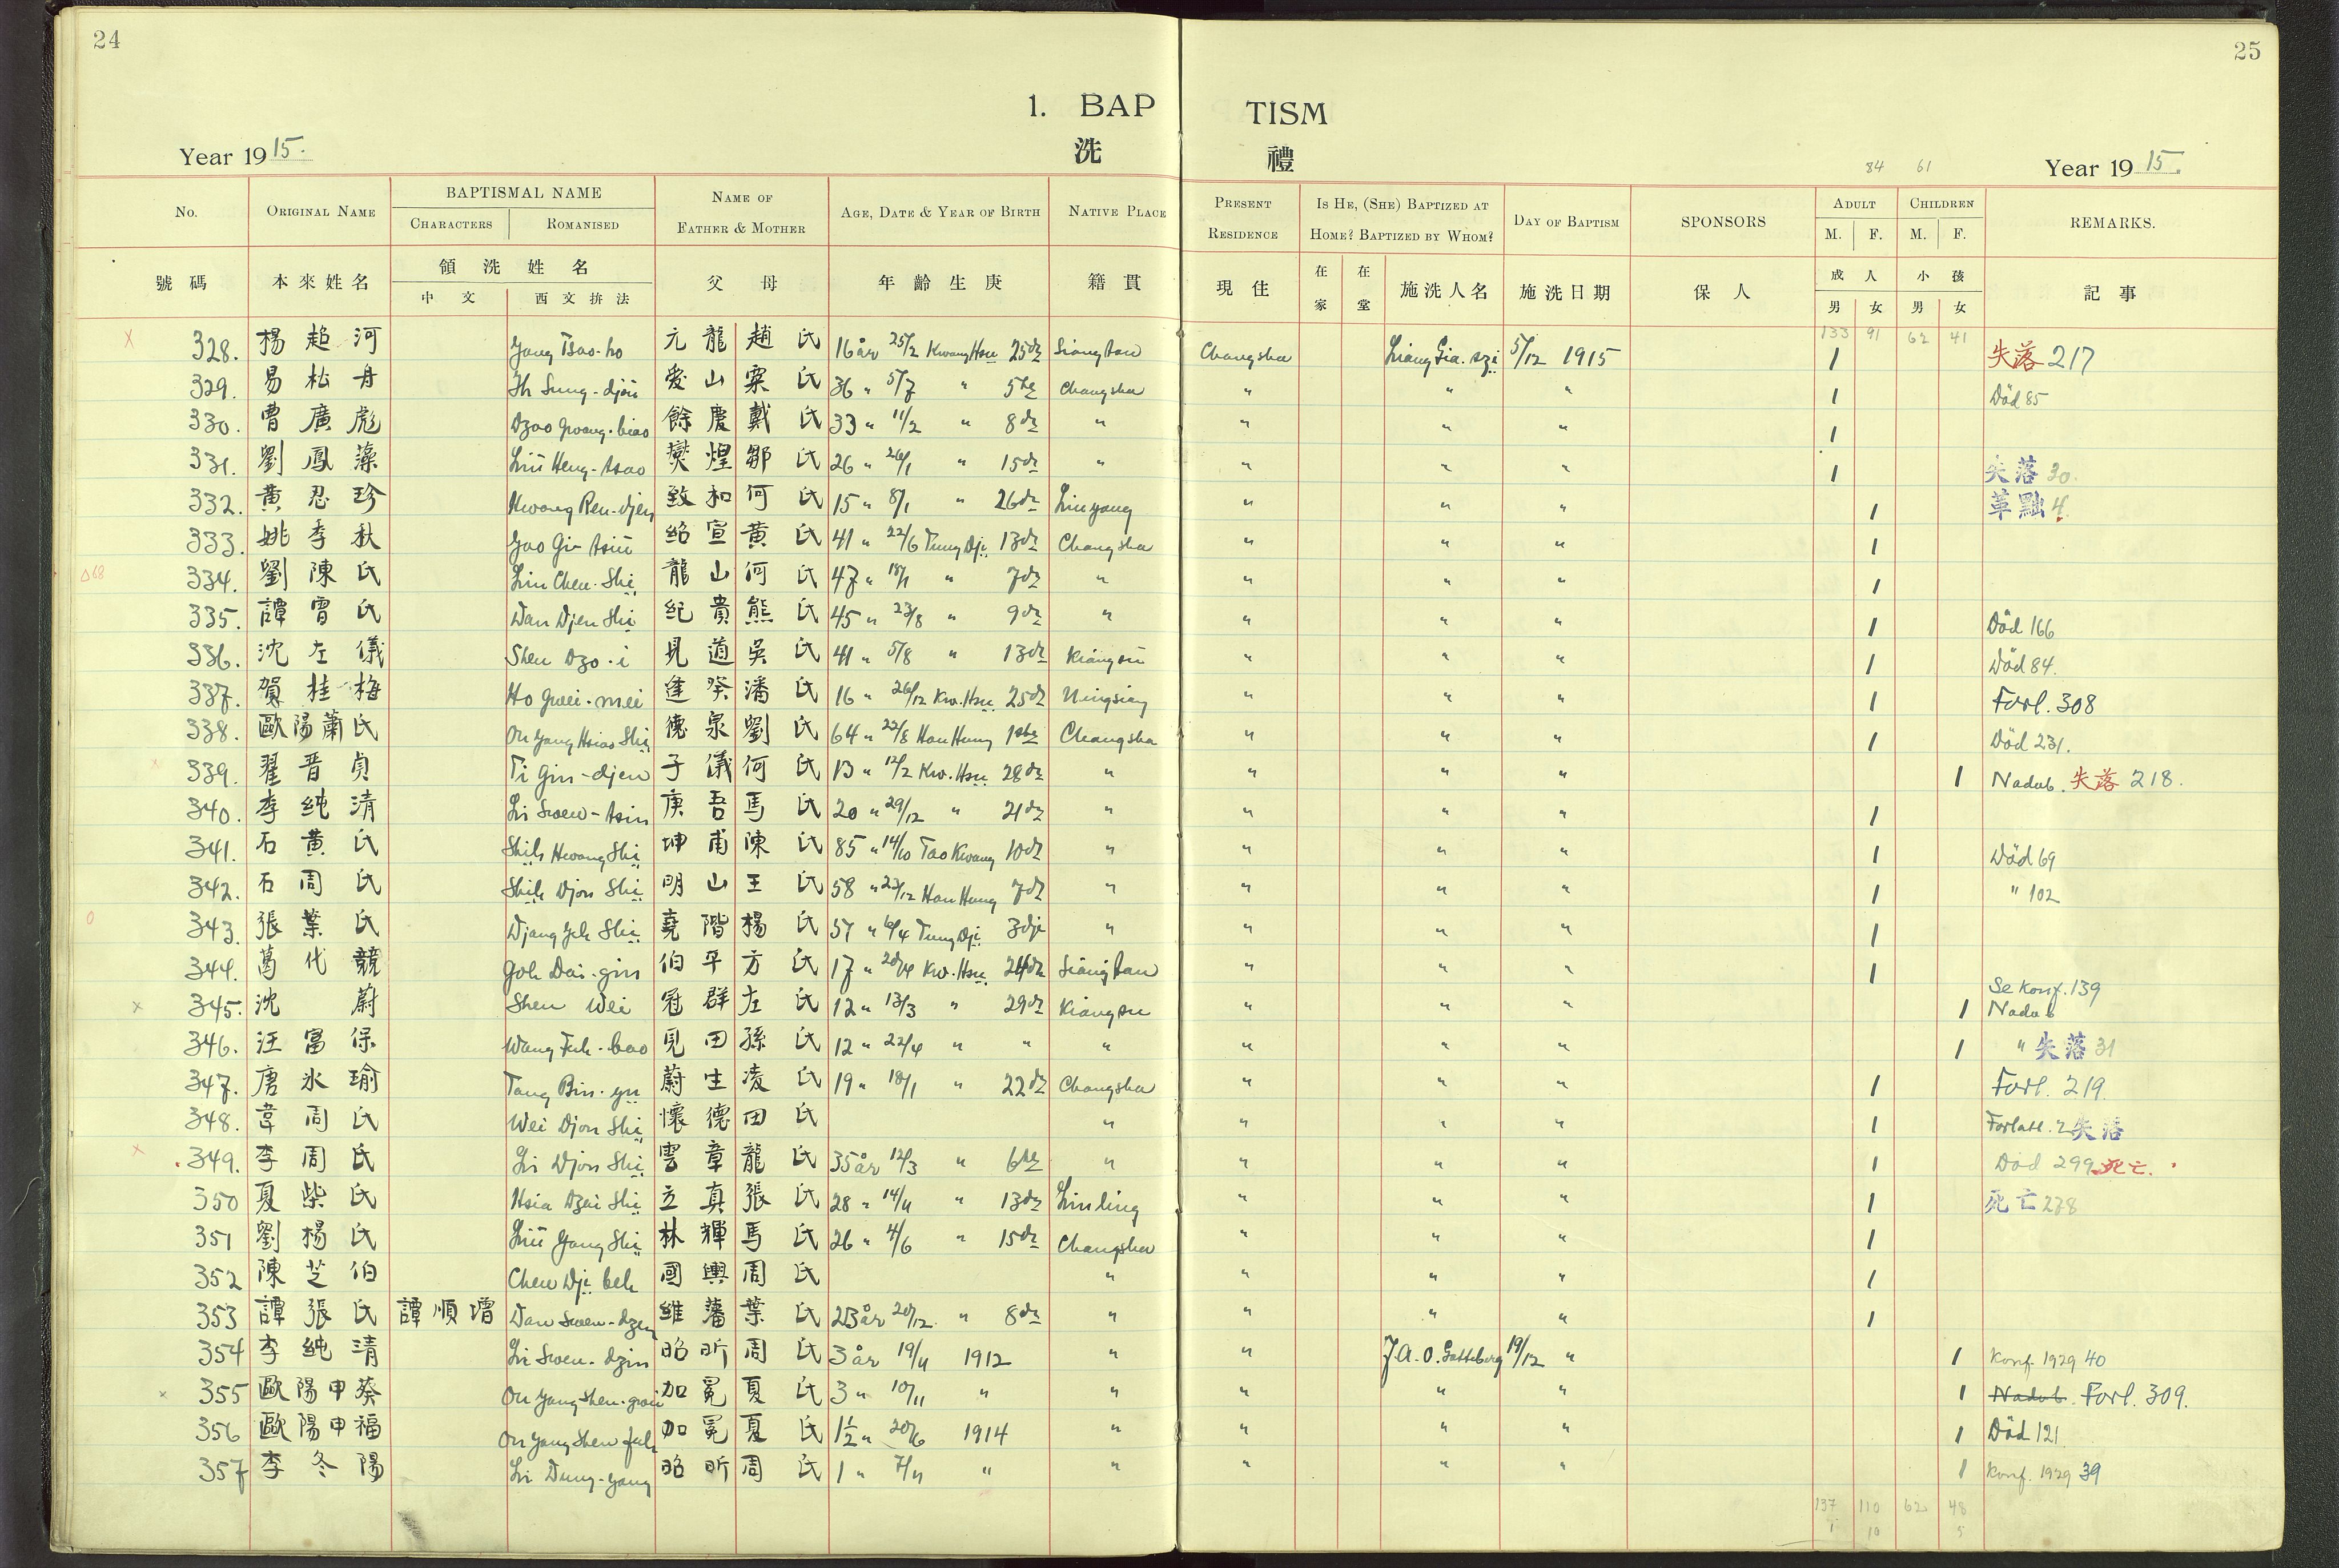 24
25
1. BAP TISM
洗 禮
Year 19 15.
84 61
Year 19 15.
No. ORIGINAL NAME BAPTISMAL NAME NAME OF FATHER & MOTHER AGE, DATE & YEAR OF BIRTH NATIVE PLACE PRESENT RESIDENCE IS HE, (SHE) BAPTIZED AT HOME? BAPTIZED BY WHOM? DAY OF BAPTISM SPONSORS ADULT CHILDREN REMARKS.
CHARACTERS ROMANISED M. F. M. F.
號碼 本來姓名 領洗姓名 父母 年齡生庚 籍貫 現住 在家 在堂 施洗人名 施洗日期 保人 成人 小孩 記事
中文 西文拚法 男 女 男 女
133 91 62 41
X 328. 楊趋河 Yang Tsao-ho 元龍 趙氏 16 år 25/2 Kwang Hsü 25dz Siangtan Changsha Liang Gia-szi 5/12 1915 1 失落 217
329. 易松舟 Ih Sung-djou 愛山 粟氏 36 " 5/7 " 5te Changsha " " " 1 Död 85
330. 曹廣彪 Dzao Gwang-biao 餘慶 戴氏 33 " 11/2 " 8de " " " " 1
331. 劉鳳藻 Liu Heng-tsao 煐煌 鄒氏 26 " 26/1 " 15de " " " " 1 失落 30.
332. 黃忍珍 Hwang Ren-djen 致和 何氏 15 " 8/1 " 26de Liuyang " " " 1 革黜 4.
333. 姚季秋 Yao Gi-tsiu 紹宣 黃氏 41 " 22/6 Tung Dji 13de Changsha " " " 1
△68 334. 劉陳氏 Liu Chen-Shi 龍山 何氏 47 " 18/1 " 7de " " " " 1
335. 譚曾氏 Dan Djen Shi 紀貴 熊氏 45 " 23/8 " 9de " " " " 1 Död 166
336. 沈左儀 Shen Dzo-i 見道 吳氏 41 " 5/8 " 13de Kiangsu " " " 1 Död 84.
337. 賀桂梅 Ho Gwei-mei 逢癸 潘氏 16 " 26/12 Kw. Hsü 25de Ningsiang " " " 1 Forl. 308
338. 歐陽蕭氏 Ou Yang Hsiao Shi 德泉 劉氏 64 " 22/8 Han Hung 1sta Changsha " " " 1 Död 231.
339. 翟晋貞 Ti Gin-djen 子儀 何氏 13 " 12/2 Kw. Hsü 28de " " " " 1 Nadub. 失落 218.
340. 李純清 Li Swen-tsin 庚吾 馬氏 20 " 29/12 " 21de " " " " 1
341. 石黃氏 Shih Hwang Shi 坤甫 陳氏 85 " 14/10 Tao Kwang 10de " " " " 1 Död 69
342. 石周氏 Shih Djou Shi 明山 王氏 58 " 22/12 Han Hung 7de " " " " 1 " 102
0 343. 張葉氏 Djang Yeh Shi 堯階 楊氏 51 " 4/4 Tung Dji 3dje " " " " 1
344. 葛代競 Goh Dai-gin 伯平 方氏 17 " 20/4 Kw. Hsü 24de Siangtan " " " 1
x 345. 沈蔚 Shen Wei 冠群 左氏 12 " 13/3 " 29de Kiangsu " " " 1 Se Konf. 139 Nadub
346. 汪富保 Wang Fuh-bao 見田 孫氏 12 " 22/4 " " " " " " 1 " 失落 31
347. 唐氷瑜 Tang Bin-yu 蔚生 凌氏 19 " 18/1 " 22de Changsha " " " 1 Forl. 219.
348. 韋周氏 Wei Djou Shi 懷德 田氏 " " " " 1 Forlatt. 2 失落
x 349. 李周氏 Li Djou Shi 雲章 龍氏 35 år 12/3 " 6te " " " " 1 Död 299 死亡.
350 夏柴氏 Hsia Dzai Shi 立真 張氏 28 " 14/4 " 13de Linling " " " 1 死亡 238
351 劉楊氏 Liu Yang Shi 林輝 馬氏 26 " 4/6 " 15de Changsha " " " 1
352 陳芝伯 Chen Dji beh 國興 周氏 " " " " 1
353 譚張氏 譚順增 Dan Swen-dzen 維藩 葉氏 23 år 20/12 " 8de " " " " 1
354 李純清 Li Swen-dzin 昭昕 周氏 3 år 19/4 1912 " " J. A. O. Gottberg 19/12 " 1 Konf. 1929 40
x 355 歐陽申葵 Ou Yang Shen-gwei 加冕 夏氏 3 " 10/11 " " " " " 1 Nadub. Forl. 309.
356 歐陽申福 Ou Yang Shen fuh 加冕 夏氏 1½ " 20/6 1914 " " " " 1 Död 121
357 李冬陽 Li Dung-yang 昭昕 周氏 1 " 7/11 " " " " " 1 Konf. 1929 39
137 110 62 48
1 10 5